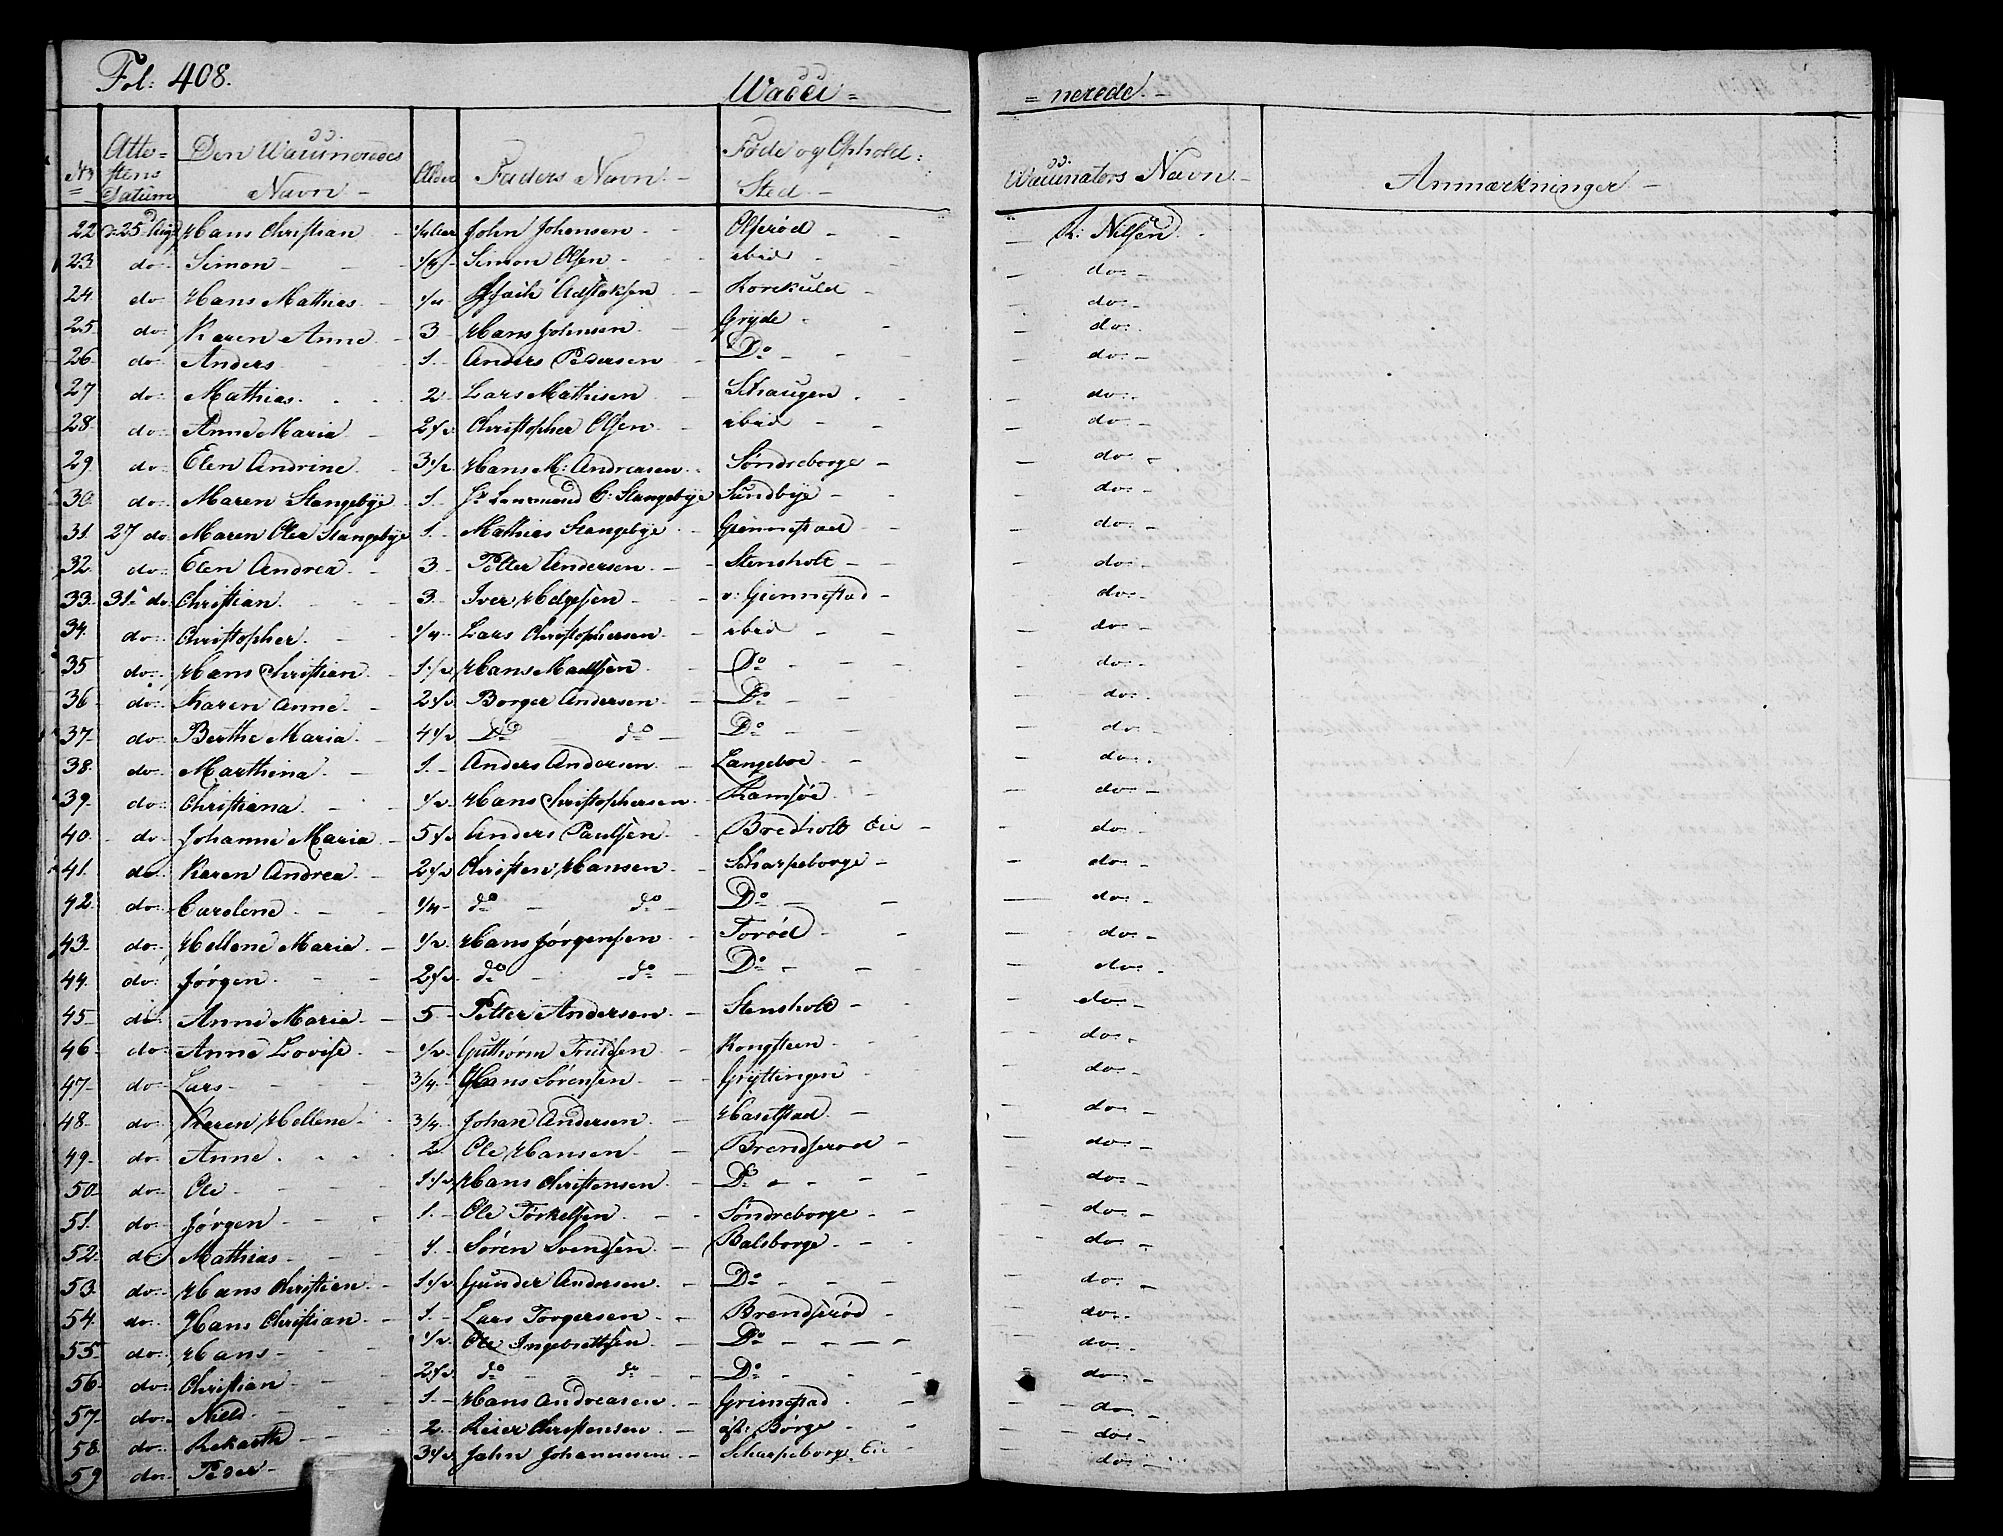 Fol: 408. Wacci= =nerede.
No Attestens Datum Den Waccineredes Navn Alder Faders Navn Føde og Ophold: Sted Waccinators Navn Anmærkninger
22 d. 25d Aug Hans Christian 1/4 Aar John Johensen R: Nilsen
23 do Simon 1/4 Simon Olsen ibid do
24 do Hans Mathias 1/4 Adstaksen do
25 do Karen Anne 3 Hans Johnsen Gryde do
26 do Anders 1 Anders Pedersen Do do
27 do Mathias 2 Lars Mathisen Schaugen do
28 do Anne Maria 2 1/2 Christopher Olsen ibid do
29 do Elen Andrine 3 1/2 Hans M: Andreasen Søndreborge do
30 do Maren Stangebye 1 Hr Lensmand C: Stangebye Sundbye do
31 27 do Maren Olea Stangebye 1 Mathias Stangebye Grimestad do
32 do Elen Andrea 3 Petter Andersen Stensholt do
33 31 do Christian 3 Iver Helgesen v: Grimestad do
34 do Christopher 1/4 Lars Christophersen ibid do
35 do Hans Christian 1 1/2 Hans Madtsen Do do
36 do Karen Anne 2 1/2 Borger Andersen Do do
37 do Berthe Maria 4 1/2 Do do Do do
38 do Marthina 1 Anders Andersen Langeboe do
39 do Christiana 1/2 Hans Christophersen Ramsøe do
40 do Johanne Maria 5 1/2 Anders Paulsen Bredholt Eie do
41 do Karen Andrea 2 1/2 Christen Hansen Scharpeborge do
42 do Carolene 1/4 do do Do do
43 do Hellene Maria 1/2 Hans Jørgensen Torød do
44 do Jørgen 2 1/2 do do Do do
45 do Anne Maria 5 Petter Andersen Stensholt do
46 do Anne Lovise 1/2 Guthorm Trulsen Kongsteen do
47 do Lars 3/4 Hans Sørensen Gryttingen do
48 do Karen Hellene 3/4 Johan Andersen Hasetstad do
49 do Anne 2 Ole Hansen Brendserød do
50 do Ole 1 1/2 Hans Christensen Do do
51 do Jørgen 1 Ole Torkelsen Søndreborge do
52 do Mathias 1 Søren Svendsen Balsborge do
53 do Hans Christian 1 1/2 Gunder Andersen Do do
54 do Hans Christian 1 Lars Torgersen Brendserød do
55 do Hans 1/2 Ole Ingebrethsen Do do
56 do Christian 2 1/2 do do Do do
57 do Niels 1 Hans Andreasen Grimestad do
58 do Rekarth 2 Reier Christensen øst: Børge do
59 do Peder 3 1/2 John Johannesen Scharpeborge Eie do